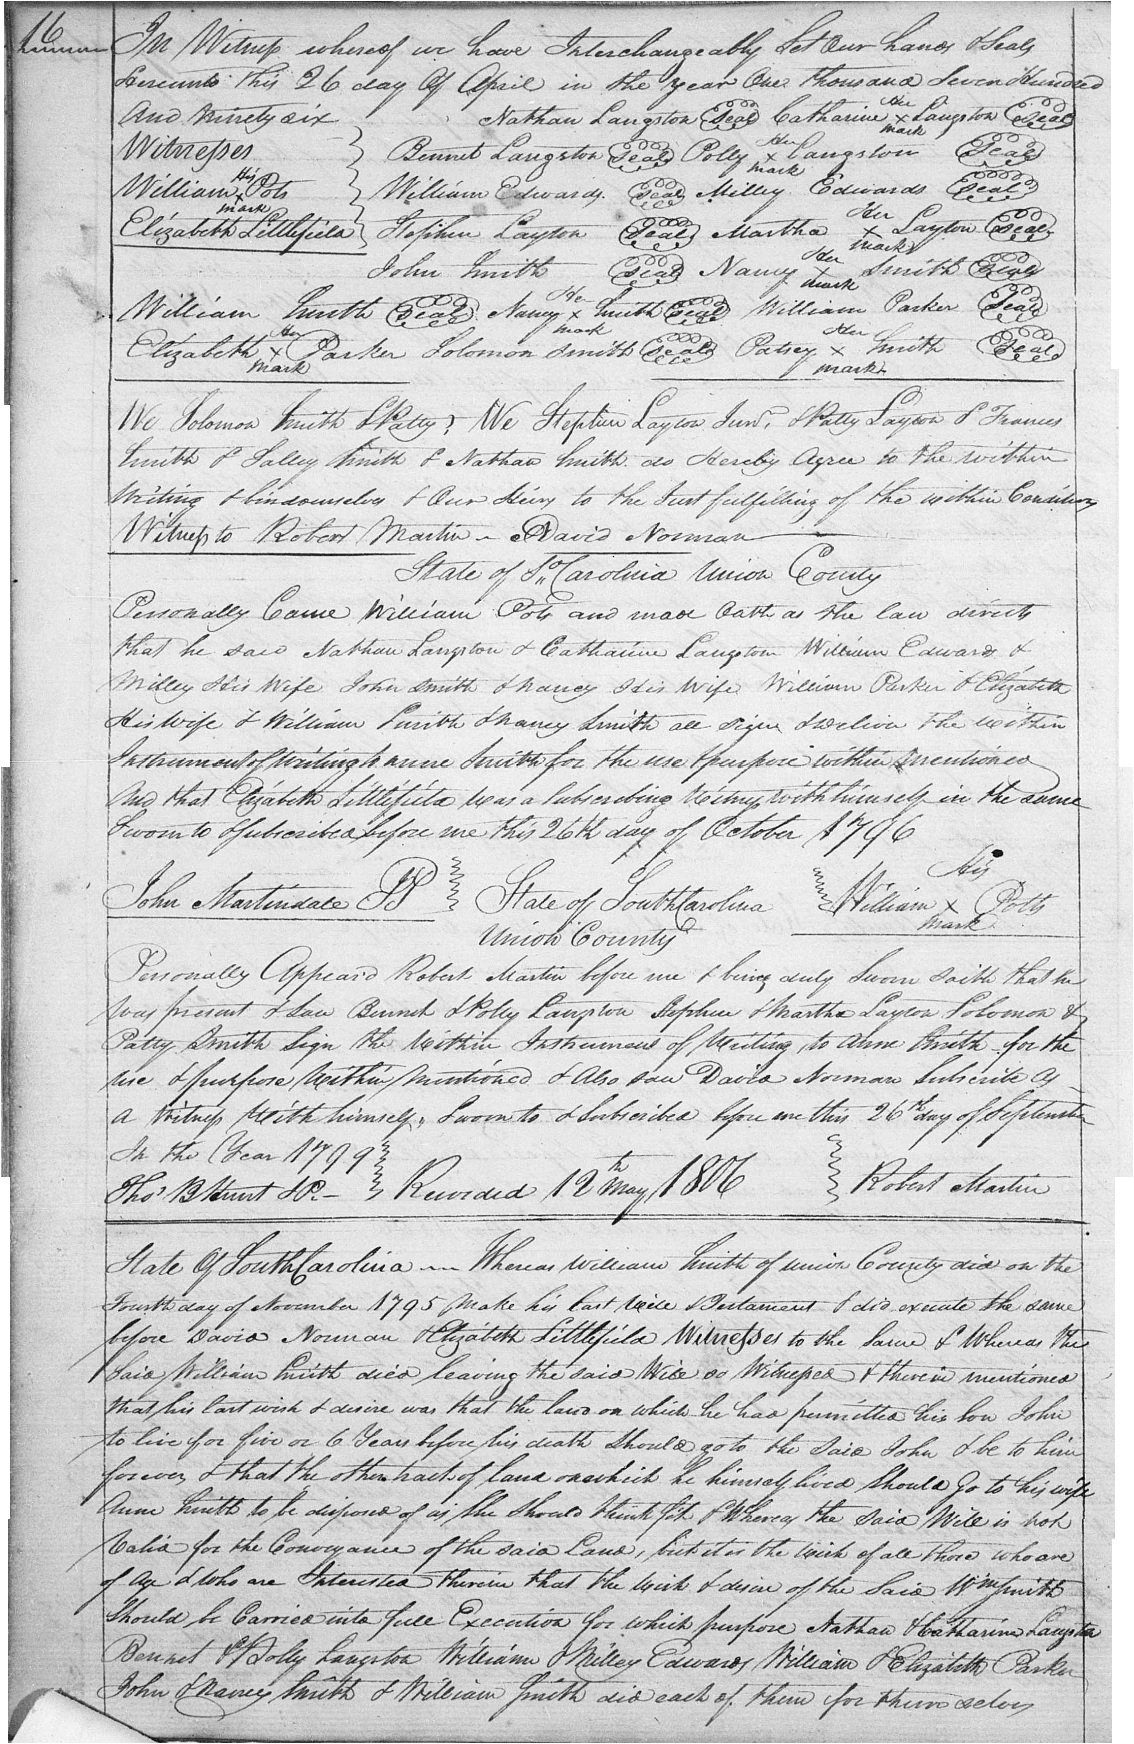 16
In Witness whereof we have Interchangeably Set Our hands & Seals
Hereunto this 26 day Of April in the year One thousand Seven Hundred
And Ninety Six Nathan Langston Seal Catharine Her x mark Langston Seal
Witnesses Bennet Langston Seal Polly Her x mark Langston Seal
William His x mark Pots William Edwards. Seal Milley Edwards Seal
Elizabeth Littlefield Stephen Layton Seal Martha Her x mark Layton Seal
John Smith Seal Nancy Her x mark Smith Seal
William Smith Seal Nancy Her x mark Smith Seal William Parker Seal
Elizabeth Her x mark Parker Solomon Smith Seal Patsey Her x mark Smith Seal
We Solomon Smith & Patty, We Stephen Layton Junr. & Patty Layton & Frances
Smith & Salley Smith & Nathan Smith do Hereby Agree to the within
Writing & bind ourselves & Our Heirs to the Just fulfilling of the within Conditions
Witness to Robert Martin - David Norman
State of So. Carolina Union County
Personally Came William Pots and made Oath as the law directs
that he saw Nathan Langston & Catharine Langston William Edwards &
Milley His Wife John Smith & Nancy His Wife William Parker & Elizabeth
His Wife & William Smith & Nancy Smith all sign & deliver the within
Instrument of Writing to anne Smith for the use & purpose within mentioned
And that Elizabeth Littlefield was a Subscribing Witness with himself in the same
Sworn to & Subscribed before me this 26th day of October 1796
John Martindale JP State of South Carolina William His x mark Potts
Union County
Personally Appeard Robert Martin before me & being duly Sworn saith that he
was present & saw Bennet & Polly Langston Stephen & Martha Layton Solomon &
Patty Smith Sign the Within Instrument of Writing to Anne Smith for the
use & purpose Within Mentioned & Also saw David Norman Subscribe as
a Witness With himself, Sworn to & Subscribed before me this 26th day of September
In the Year 1799
Thos. B Hunt JP. - Recorded 12th May 1806 Robert Martin
State Of South Carolina Whereas William Smith of union County did on the
Fourth day of November 1795 Make his last Will & Testament & did execute the same
before David Norman & Elizabeth Littlefield Witnesses to the Same & Whereas the
Said William Smith died leaving the said Will so Witnessed & therein mentioned
that his last wish & desire was that the land on which he had permitted his Son John
to live for five or 6 Years before his death Should go to the Said John & be to him
forever, & that the other tract of land on which he himself lived Should Go to his wife
Anne Smith to be disposed of as She Should think fit & Whereas the Said Will is not
Valid for the Conveyance of the said Land, but it is the wish of all those who are
of Age & Who are Interested therein that the wish & desire of the Said Wm Smith
Should be Carried into full Execution for which purpose Nathan & Catharine Langston
Bennet & Polly Langston William & Milley Edwards William & Elizabeth Parker
John & Nancy Smith & William Smith did each of them for themselves